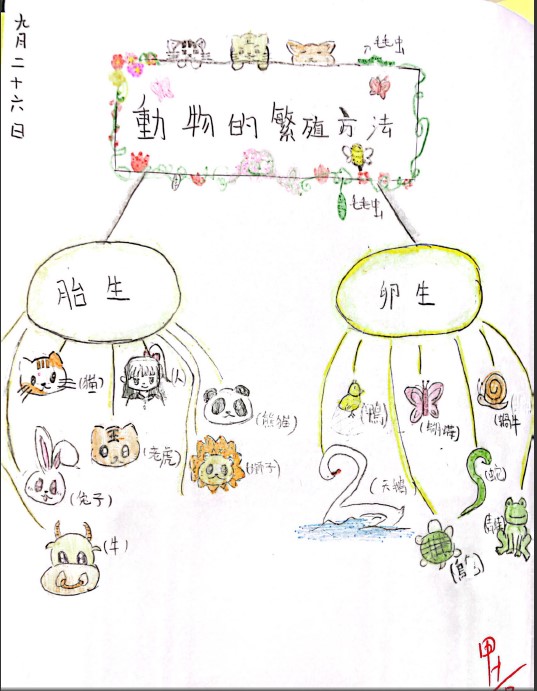 九月二十六日
毛虫
動物的繁殖方法
毛虫
胎生
卵生
(貓)
(人)
(熊貓)
(老虎)
(獅子)
(兔子)
(牛)
(鴨)
(蝴蝶)
(蝸牛
(天鵝)
(蛇)
甲